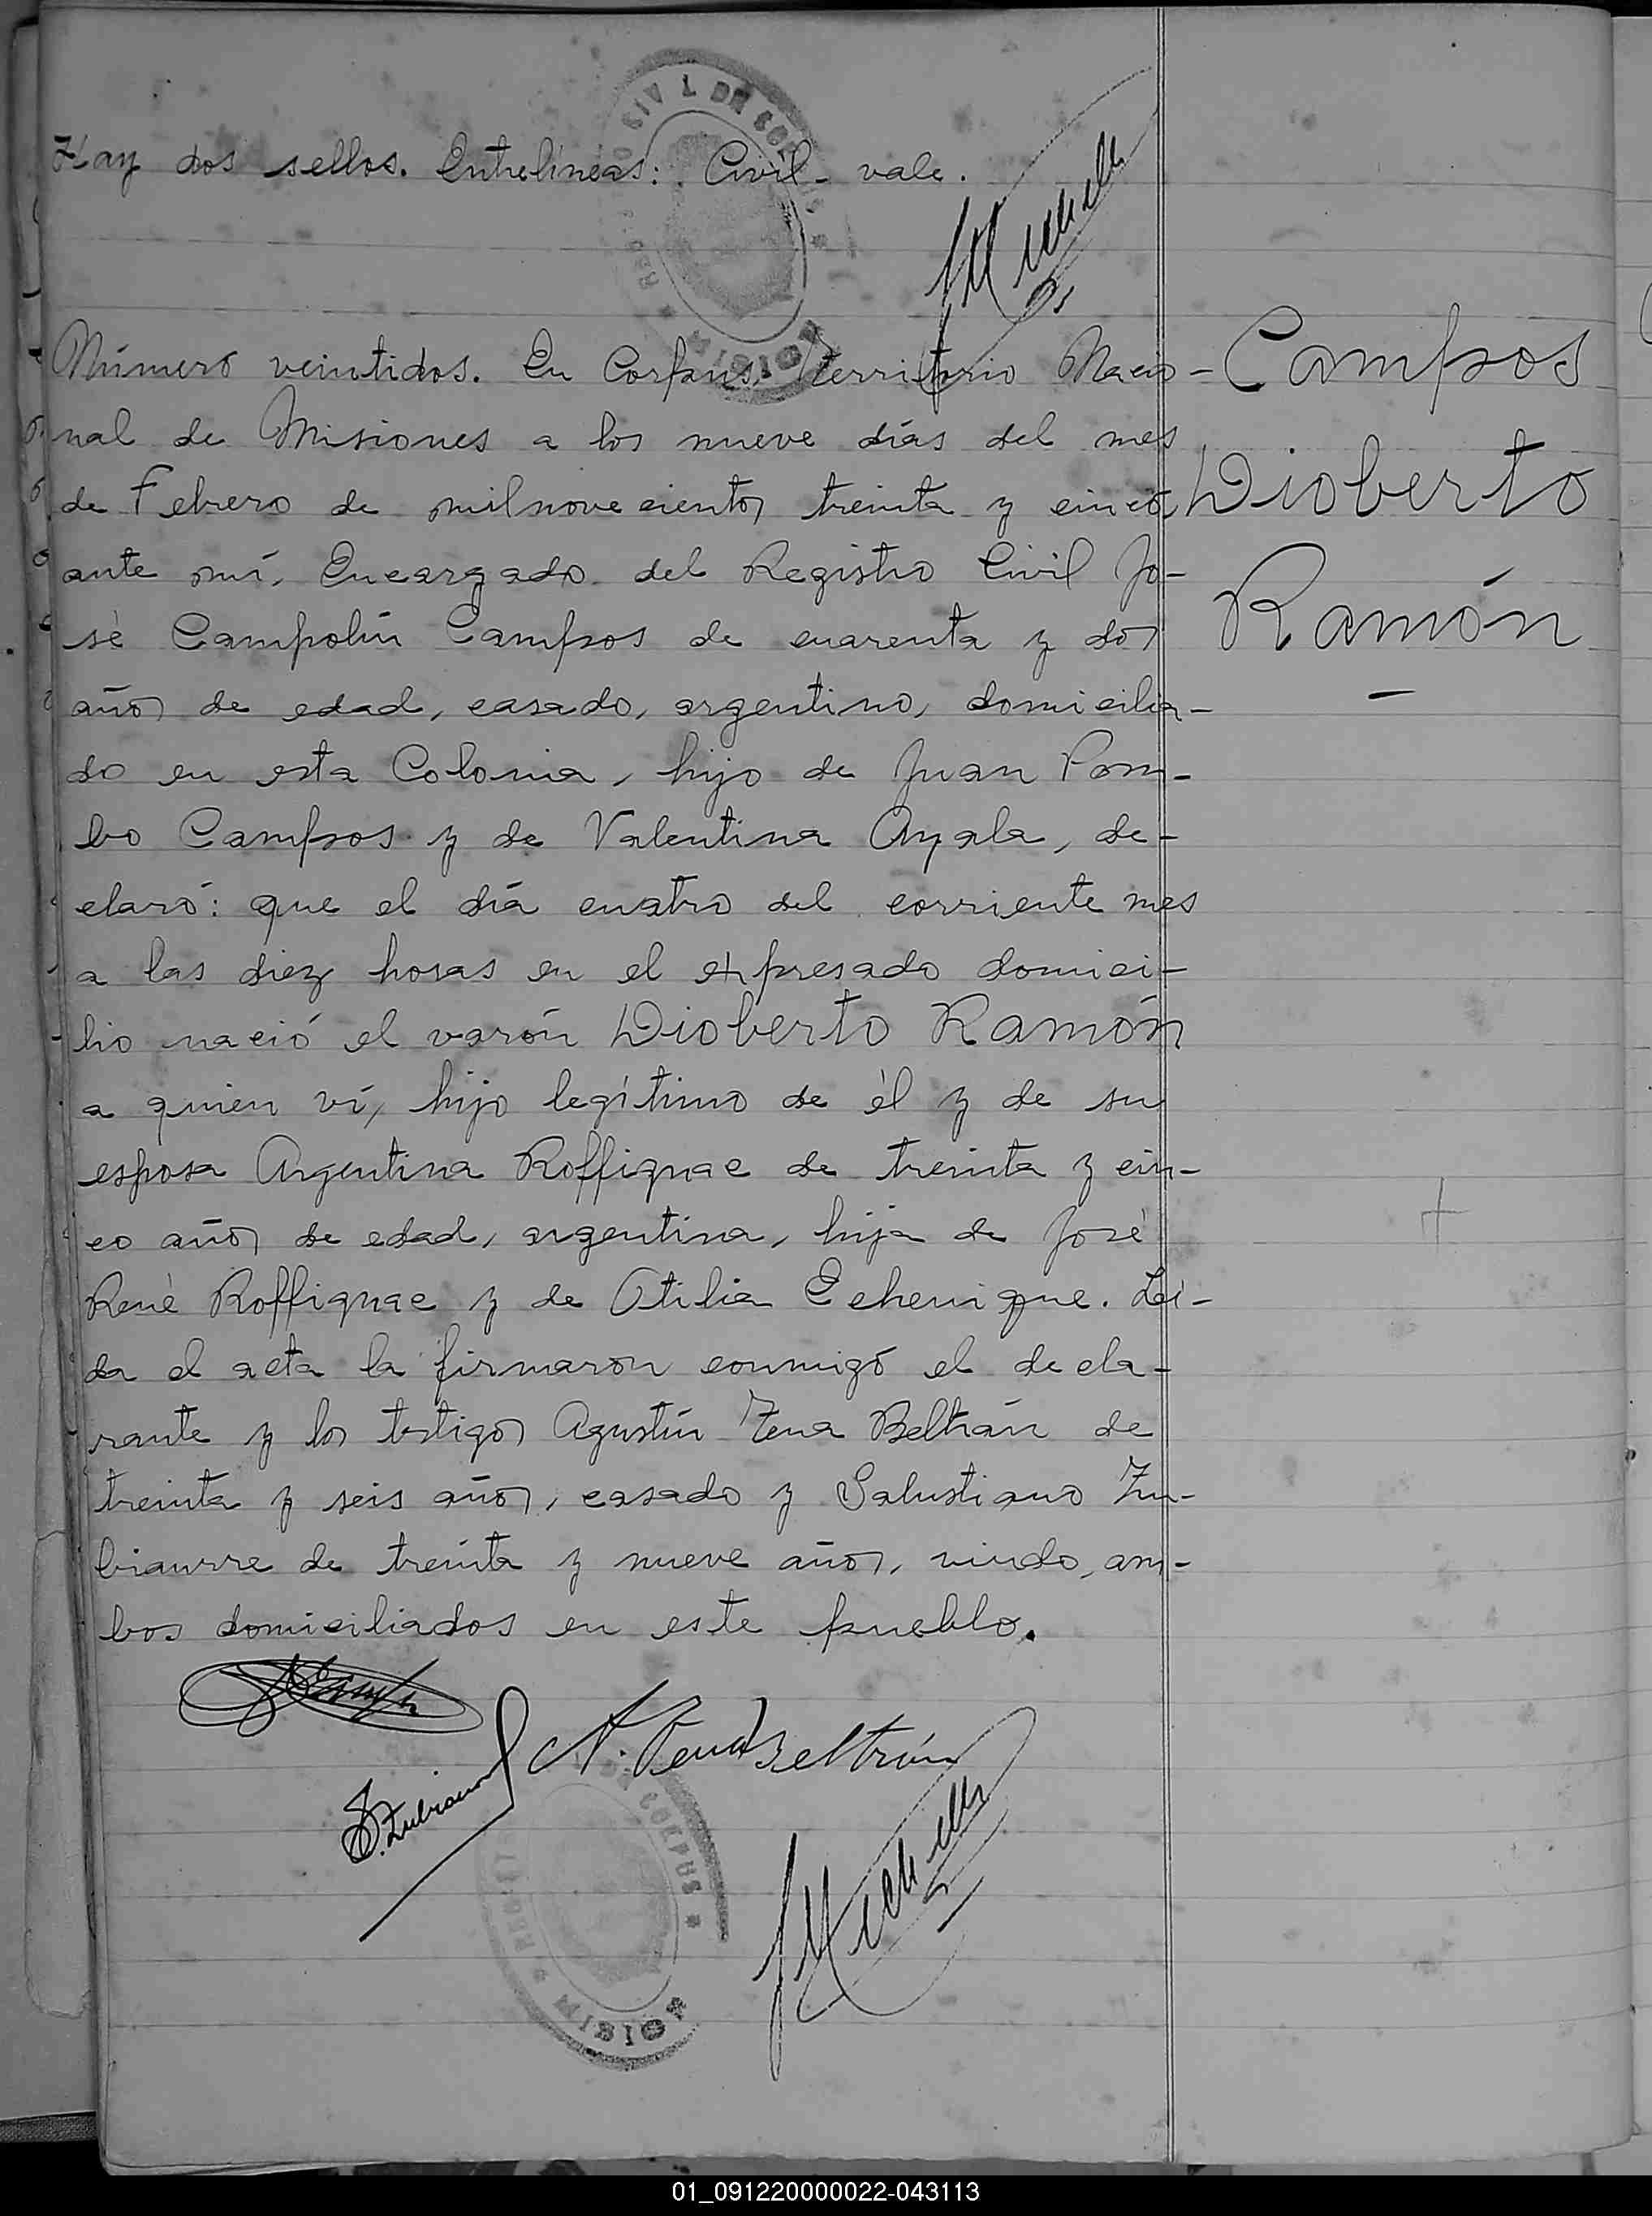 Hay dos sellos. Entrelíneas: Civil - vale.
Número veintidos. En Corpus, Territorio Nacio-
nal de Misiones a los nueve días del mes
de Febrero de milnovecientos treinta y cinco
ante mí, Encargado del Registro Civil Jo-
sé Campolín Campos de cuarenta y dos
años de edad, casado, argentino, domicilia-
do en esta Colonia, hijo de Juan Pom-
bo Campos y de Valentina Ayala, de-
claró: que el día cuatro del corriente mes
a las diez horas en el expresado domici-
lio nació el varón Dioberto Ramón
a quien ví, hijo legítimo de él y de su
esposa Argentina Roffignac de treinta y cin-
co años de edad, argentina, hija de José
René Roffignac y de Otilia Echenique. Leí-
da el acta la firmaron conmigo el decla-
rante y los testigos Agustín Tena Beltrán de
treinta y seis años, casado y Salustiano Zu-
biaurre de treinta y nueve años, viudo, am-
bos domiciliados en este pueblo.
Campos
Dioberto
Ramón
-
A. Tena Beltrán
CORPUS
01_091220000022-043113